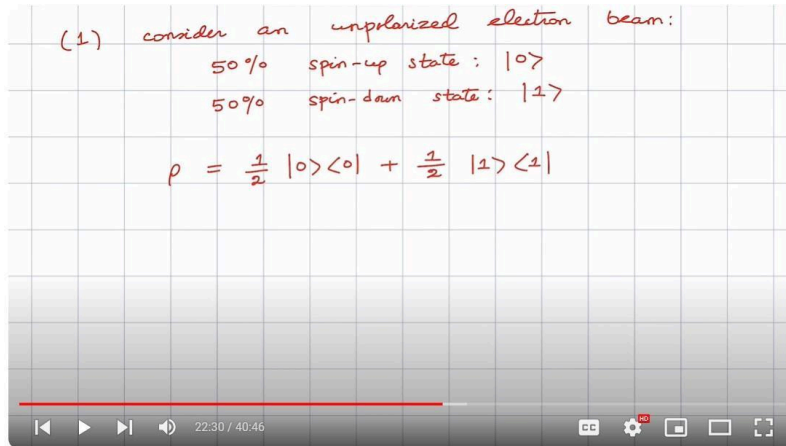 (1) consider an unpolarized electron beam:
50% spin-up state : |0>
50% spin-down state : |1>
ρ = 1/2 |0><0| + 1/2 |1><1|
22:30 / 40:46 CC HD